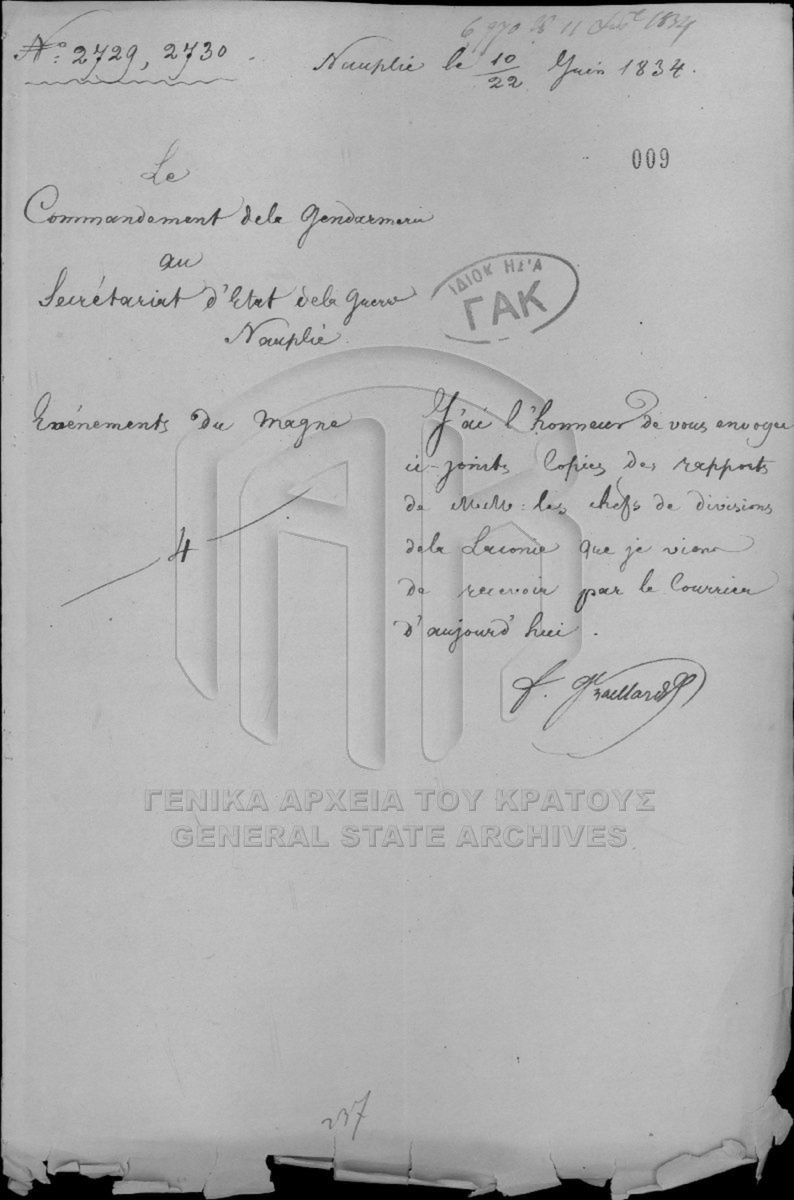 Nº 2729, 2730
Nauplie le 10/22 Juin 1834.
009
Le
Commandement dela Gendarmerie
au
Secrétariat d'Etat dela Guerre
Nauplie
ΓΑΚ
Evénements du Magne
4
J'ai l'honneur de vous envoyer
ci-joints Copies des rapports
de MM: les chefs de divisions
dela Laconie que je viens
de recevoir par le Courrier
d'aujourd'hui.
f. Graillard
ΓΕΝΙΚΑ ΑΡΧΕΙΑ ΤΟΥ ΚΡΑΤΟΥΣ
GENERAL STATE ARCHIVES
237